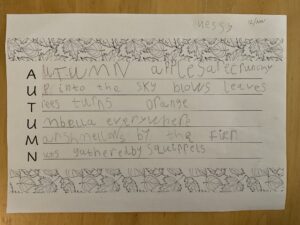 Nessy 12/Nov
AUTUMN applesarecrunchy
Up into the sky blows leaves
Trees turns orange
Umbella everywhere
Marshmellows by the fier
Nuts gatheredby squirrels